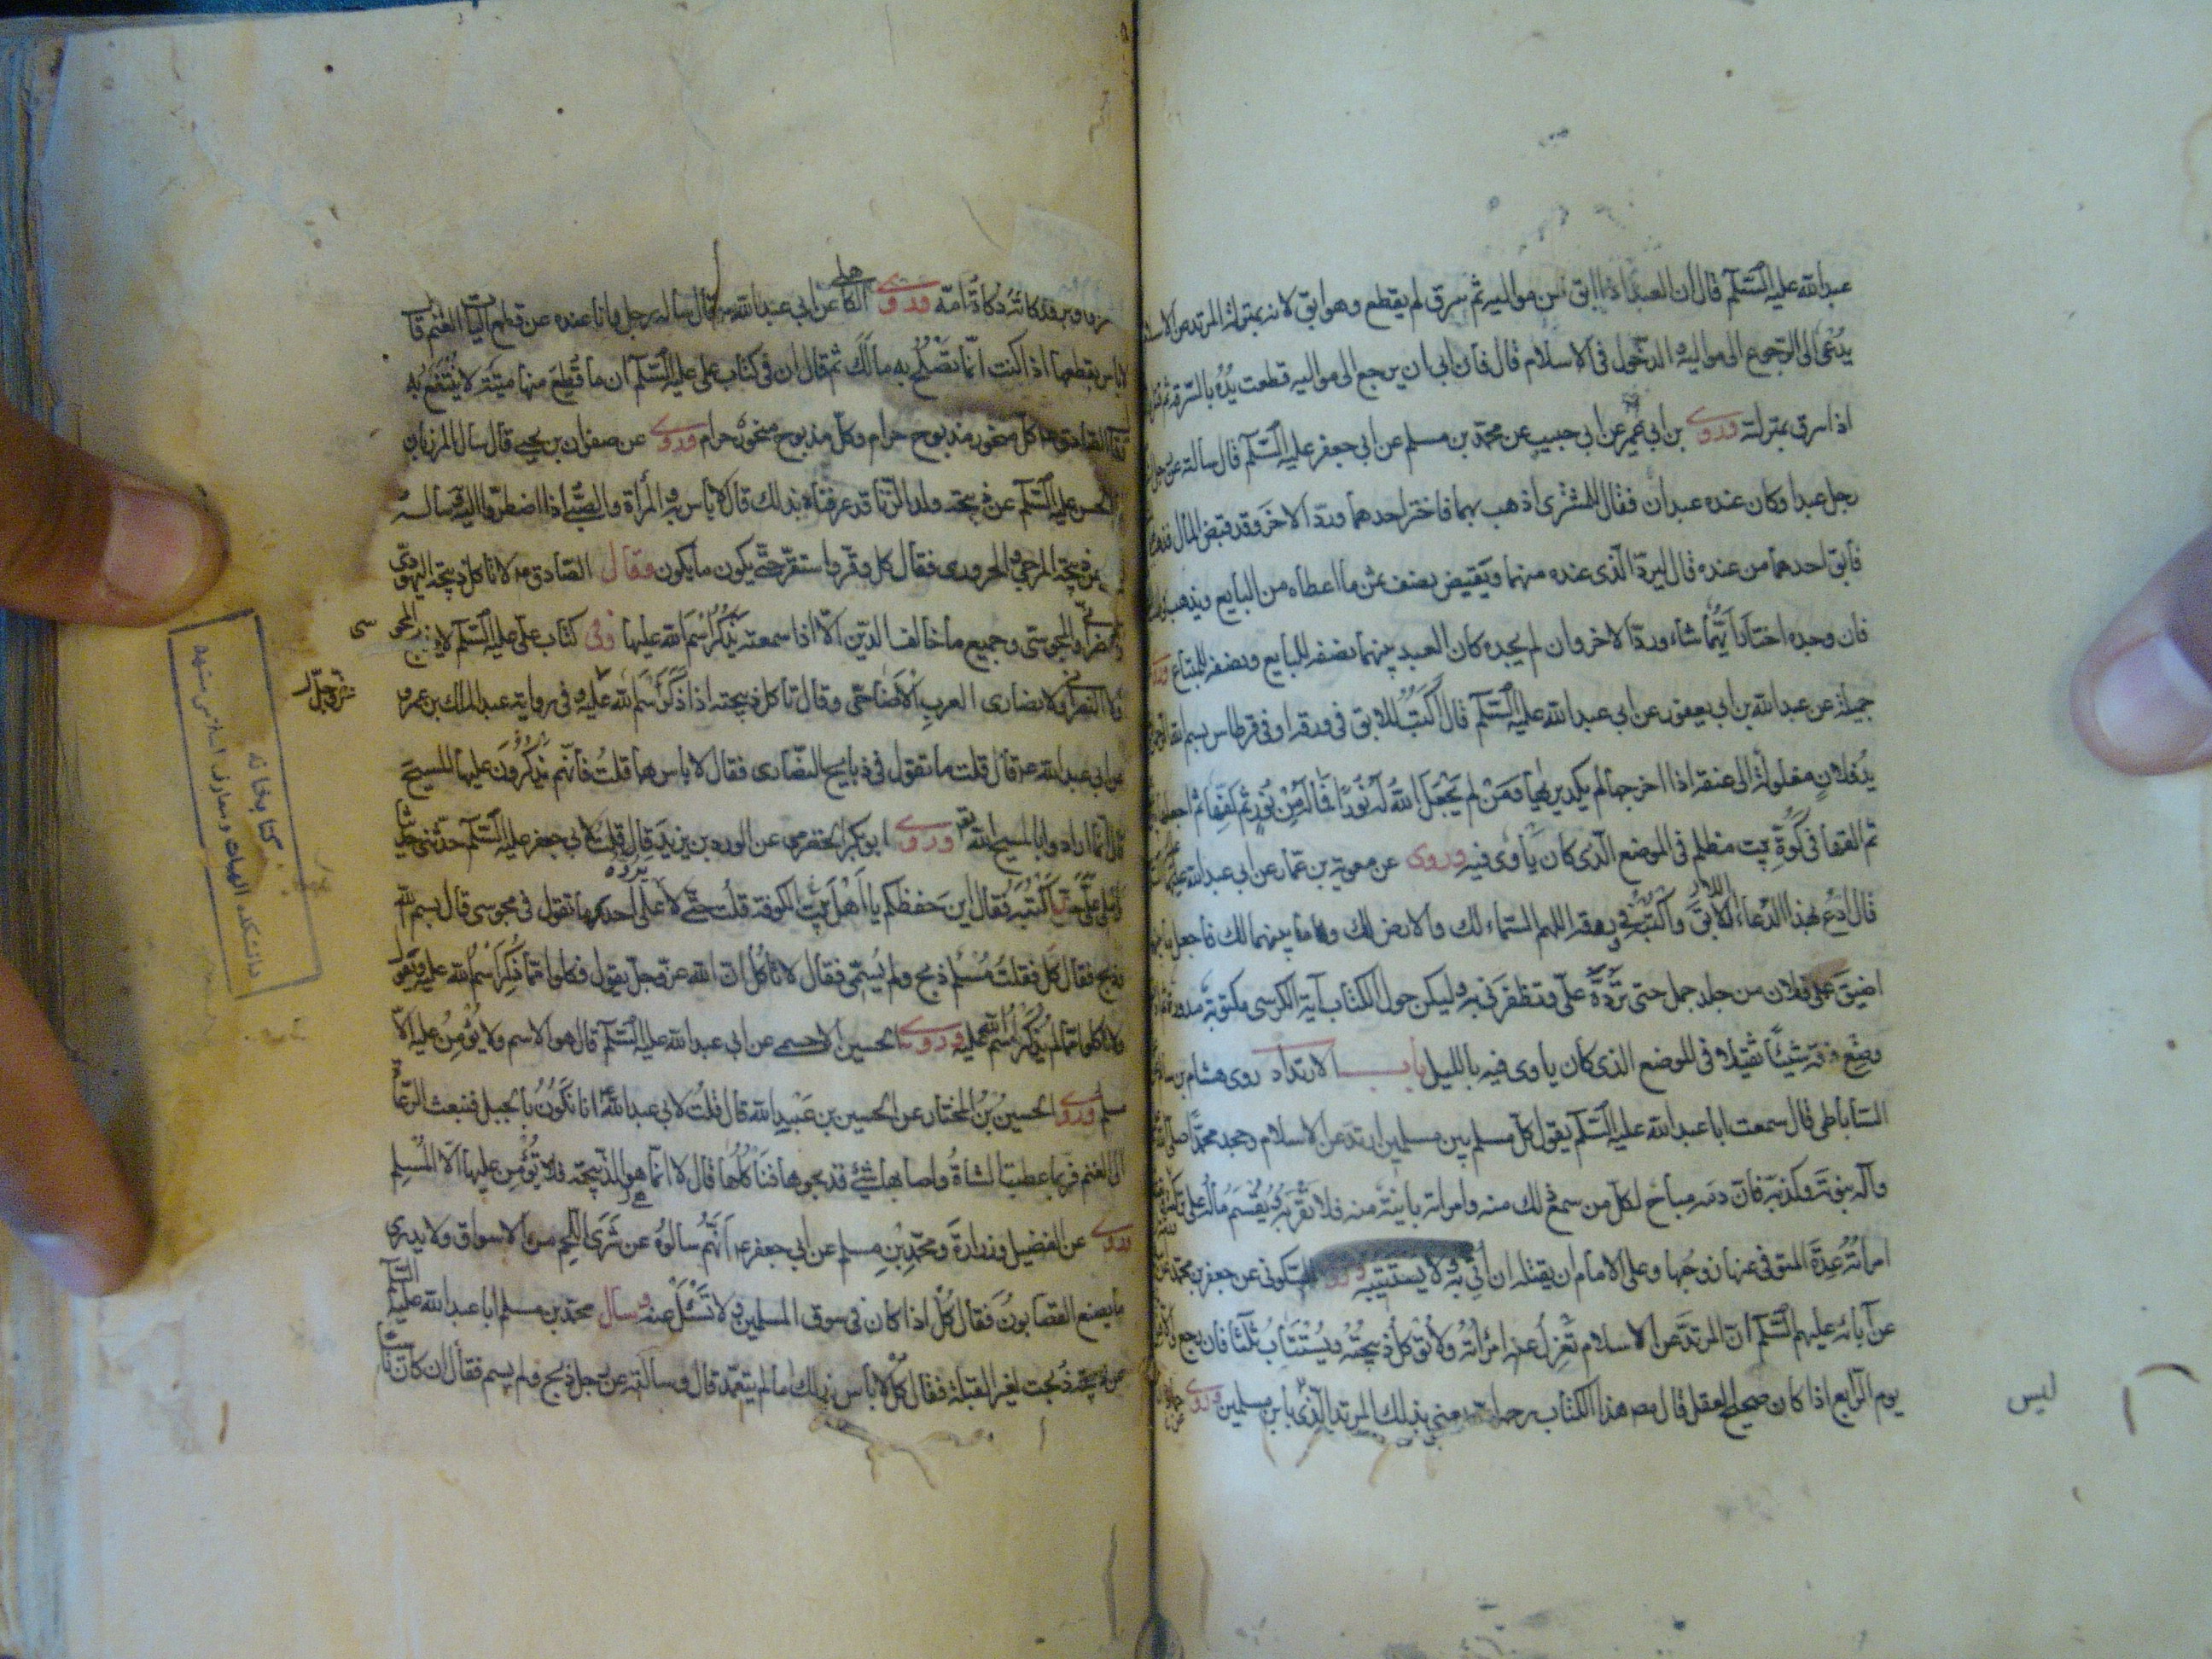 عبدالله عليه السلم قال ان العبد اذا ابق من مواليه ثم سرق لم يقطع وهو ابق لانه بمنزلة المرتد عن الاسلا
يدعى الى الرجوع الى مواليه الدخول فى الاسلام قال فان ابى ان يرجع الى مواليه قطعت يده بالسرقة ثم قتل
اذا سرق بمنزلته وروى بن ابى عمير عن ابى حبيب عن محمد بن مسلم عن ابى جعفر عليه السلم قال سالته عن رجل
رجل عبدا وكان عنده عبدان فقال للمشترى اذهب بهما فاختر احدهما ورد الاخر وقد قبض المال فذهب
فابق احدهما من عنده قال ليرد الذى عنده منهما ويقبض نصف ثمن ما اعطاه من البايع ويذهب
فان وجده اختار ايهما شاء ورد الاخر وان لم يجده كان العبد بينهما نصفه للبايع ونصفه للمبتاع
جميلة عن عبدالله بن ابى يعفور عن ابى عبد الله عليه السلم قال اكتب للابق فى ورقة او فى قرطاس بسم الله
يد فلان مغلولة الى عنقه اذا اخرجها لم يكد يريها ومن لم يجعل الله له نورا فما له من نور ثم لفها ثم اجعلها
ثم القها فى كوة بيت مظلم فى الموضع الذى كان ياوى فيه وروى عن معوية بن عمار عن ابى عبد الله
قال ادع بهذا الدعاء للابق واكتبه فى ورقة اللهم السماء لك والارض لك وما بينهما لك فاجعل ما بينهما
اضيق على فلان من جلد جمل حتى ترده على وتظفرنى به وليكن حول الكتاب آية الكرسى مكتوبة مدورة
وضع فوقه شيئا ثقيلا فى الموضع الذى كان ياوى فيه بالليل باب الارتداد روى هشام بن سالم
الساباطى قال سمعت ابا عبد الله عليه السلم يقول كل مسلم بين مسلمين ارتد عن الاسلام وجحد محمدا صلى الله
وآله نبوته وكذبه فان دمه مباح لكل من سمع ذلك منه وامراته باينة منه فلا تقربه ويقسم ماله على
امراته عدة المتوفى عنها زوجها وعلى الامام ان يقتله ان اتى به ولا يستتيبه وروى السكونى عن جعفر بن محمد
عن آبائه عليهم السلم ان المرتد عن الاسلام تعزل عنه امراته ولا توكل ذبيحته ويستتاب ثلثا فان رجع
يوم الرابع اذا كان صحيح العقل قال مص هذا الكتاب رحمه الله يعنى بذلك المرتد الذى بابن مسلمين وروى
ليس
وروى الكاهلى عن ابى عبد الله ع قال ساله رجل وانا عنده عن قطع اليات الغنم
لا باس بقطعها اذا كنت انما تصلح به مالك ثم قال ان فى كتاب على عليه السلم ان ما قطع منها ميتة لا ينتفع به
كل منحور مذبوح حرام وكل مذبوح منحور حرام وروى عن صفوان بن يحيى قال سال المرزبان
الحسن عليه السلم عن ذبيحة ولد الزنا قد عرفناه بذلك قال لا باس به والمراة والصبى اذا اضطروا اليه وسالته
عن ذبيحة المرجئ والحرورى فقال كل وقر واستقر حتى يكون ما يكون وقال الصادق ع لا تاكل ذبيحة اليهودى
والنصرانى والمجوسى وجميع ما خالف الدين الا اذا سمعته يذكر اسم الله عليها وفى كتاب على عليه السلم لا يذبح المجوسى
ولا النصرانى ولا نصارى العرب الاضاحى وقال تاكل ذبيحته اذا ذكر اسم الله عز وجل عليه وفى رواية عبد الملك بن عمرو
عن ابى عبد الله ع قال قلت ما تقول فى ذبايح النصارى فقال لا باس بها قلت فانهم يذكرون عليها المسيح
قال انما ارادوا بالمسيح الله تع وروى ابو بكر الحضرمى عن الورد بن زيد قال قلت لابى جعفر عليه السلم حدثنى حديثا
واملى على حتى اكتبه فقال اين حفظكم يا اهل الكوفة قلت حتى لا يرده على احد ما تقول فى مجوسى قال بسم الله
وذبح فقال كل فقلت مسلم ذبح ولم يسم فقال لا تاكل ان الله عز وجل يقول فكلوا مما ذكر اسم الله عليه
ولا تاكلوا مما لم يذكر اسم الله عليه وروى الحسين الاحمسى عن ابى عبد الله عليه السلم قال هو الاسم ولا يؤمن عليه الا
مسلم وروى الحسين بن المختار عن الحسين بن عبيد الله قال قلت لابى عبد الله انا نكون بالجبل فنبعث الرعاة
الى الغنم فربما عطبت الشاة واصابها شئ فذبحوها فناكلها قال لا انما هو الذبيحة فلا يؤمن عليها الا المسلم
وروى عن الفضيل وزرارة ومحمد بن مسلم عن ابى جعفر ع انهم سالوه عن شرى اللحم من الاسواق ولا يدرى
ما يصنع القصابون فقال كل اذا كان فى سوق المسلمين ولا تسئل عنه وسال محمد بن مسلم ابا عبد الله عليه السلم
عن ذبيحة ذبحت لغير القبلة فقال كل لا باس بذلك ما لم يتعمد قال وسالته عن رجل ذبح ولم يسم فقال ان كان ناسيا
عز وجل
كتابخانه
دانشكده الهيات و معارف اسلامى مشهد